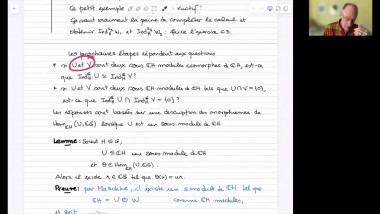 Ce petit exemple
Ça vaut vraiment la peine de compléter le calcul et
obtenir Ind W₁ et Ind W₂ : faire l'exercice C3.
Les prochaines étapes répondent aux questions
• si U et V sont deux sous CH-modules isomorphes de CH, est-ce
que Ind U ≅ Ind V ?
• si U et V sont deux sous CH-modules de CH tels que U ∩ V = {0},
est-ce que Ind U ∩ Ind V = {0} ?
Les réponses sont basées sur une description des morphismes de
Hom (U, CG) lorsque U est un sous-module de CH.
Lemme: Soient H ≤ G,
U ⊆ CH un sous-module de CH
et θ ∈ Hom (U, CG).
Alors il existe r ∈ CG tel que θ(u) = ur.
Preuve: par Maschke, il existe un s-module de CH tel que
CH = U ⊕ W comme CH modules,